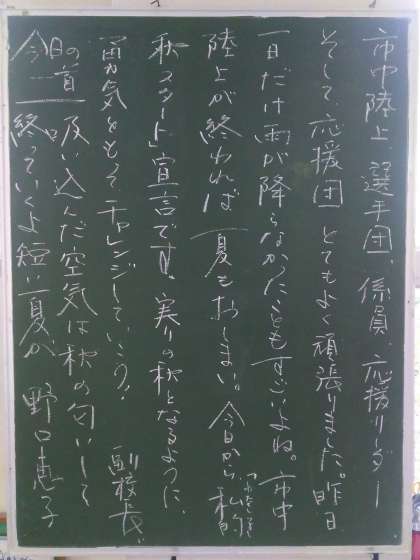 市中陸上 選手団、係員、応援リーダー
そして、応援団 とてもよく頑張りました。昨日
一日だけ雨が降らなかったこともすごいよね。市中
陸上が終われば 夏もおしまい。今日から 私的
秋スタート」宣言です。実りの秋となるように、
勇気をもってチャレンジしていこう! 副校長
今日の一首
吸い込んだ空気は秋の匂いして
終っていくよ短い夏が 野口恵子